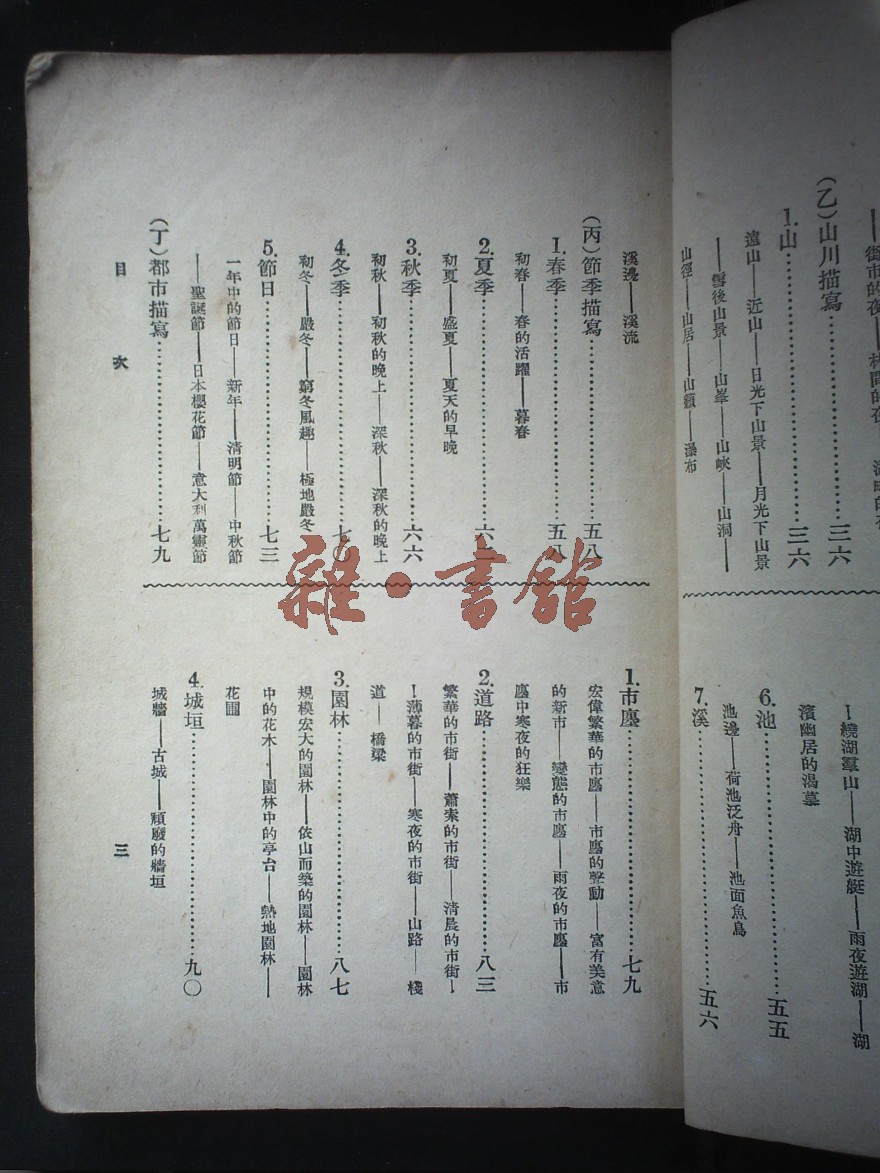 (乙)山川描寫…………三六
1.山…………三六
遠山——近山——日光下山景——月光下山景
——雪後山景——山峯——山峽——山洞——
山徑——山居——山巔——瀑布
——繞湖羣山——湖中遊艇——雨夜遊湖——湖
濱幽居的渴慕
6.池…………五五
池邊——荷池泛舟——池面魚鳥
7.溪…………五六
溪邊——溪流
(丙)節季描寫…………五八
1.春季…………五八
初春——春的活躍——暮春
2.夏季…………六
初夏——盛夏——夏天的早晚
3.秋季…………六六
初秋——初秋的晚上——深秋——深秋的晚上
4.冬季…………七〇
初冬——嚴冬——窮冬風趣——極地嚴冬
5.節日…………七三
一年中的節日——新年——清明節——中秋節
——聖誕節——日本櫻花節——意大利萬靈節
(丁)都市描寫…………七九
1.市廛…………七九
宏偉繁華的市廛——市廛的動——富有美意
的新市——變態的市廛——雨夜的市廛——市
廛中寒夜的狂樂
2.道路…………八三
繁華的市街——蕭索的市街——清晨的市街—
—薄暮的市街——寒夜的市街——山路——棧
道——橋梁
3.園林…………八七
規模宏大的園林——依山而築的園林——園林
中的花木——園林中的亭台——熱地園林——
花圃
4.城垣…………九〇
城牆——古城——頹廢的牆垣
目次
三
雜·書館